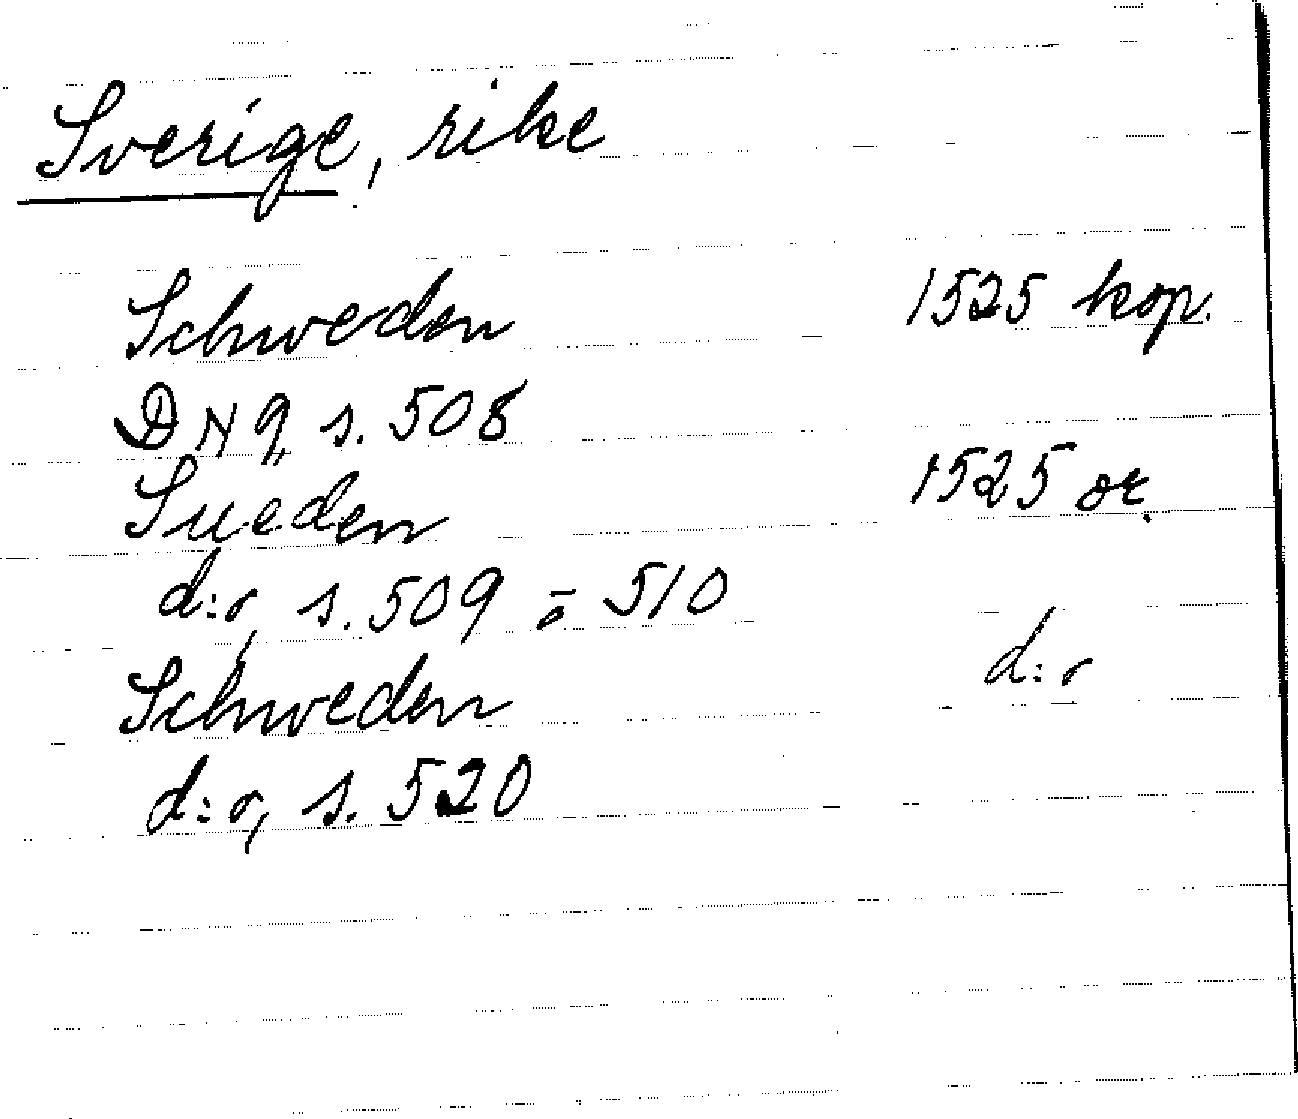 Sverige, rike
Schweden 1525 kop.
DN 9, s. 508
Sueden 1525 or.
d:o, s. 509 o 510
Schweden d:o
d:o, s. 520